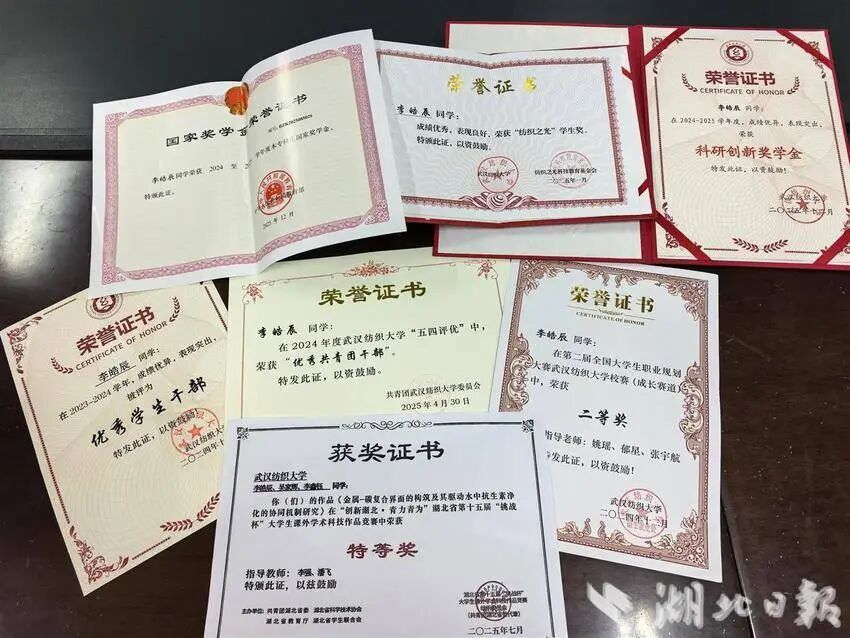 国家奖学金荣誉证书
李皓辰同学荣获 2024 至
学年度本专科生国家奖学金,
特颁此证。
2025年12月
荣誉证书
李皓辰 同学:
成绩优秀,表现良好,荣获“纺织之光”学生奖。
特颁此证,以资鼓励。
武汉纺织大学
纺织之光科技教育基金会
二〇二五年一月
荣誉证书
CERTIFICATE OF HONOR
李皓辰 同学:
在 2024-2025 学年度,成绩优异,表现突出,
荣获
科研创新奖学金
特发此证,以资鼓励!
武汉纺织大
荣誉证书
CERTIFICATE OF HONOR
李皓辰 同学:
在 2023-2024 学年,成绩优异,表现突出,
被评为
优秀学生干部
特发此证,以资鼓励!
武汉纺织大
荣誉证书
李皓辰 同学:
在 2024 年度武汉纺织大学“五四评优”中,
荣获“优秀共青团干部”。
特发此证,以资鼓励。
共青团武汉纺织大学委员会
2025 年 4 月 30 日
荣誉证书
CERTIFICATE OF HONOR
李皓辰 同学:
在第二届全国大学生职业规划
大赛武汉纺织大学校赛(成长赛道)
中,荣获
二等奖
指导老师:姚瑶、郁星、张宇航
特发此证,以资鼓励!
武汉纺织大学
获奖证书
武汉纺织大学
同学:
你(们)的作品《金属-碳复合界面的构筑及其驱动水中抗生素净
化的协同机制研究》在“创新湖北·青力青为”湖北省第十五届“挑战
杯”大学生课外学术科技作品竞赛中荣获
特等奖
指导教师: 李强、潘飞
特颁此证,以兹鼓励
主办单位:共青团湖北省委 湖北省科学技术协会
湖北省教育厅 湖北省学生联合会
二〇二五年七月
湖北日报